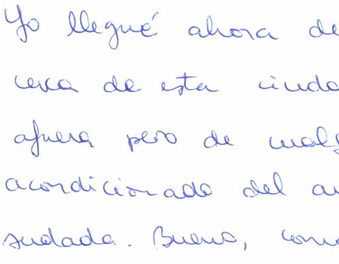 Yo llegué ahora de
cerca de esta ciuda
afuera pero de cualq
acordicionado del au
sudada. Bueno, com